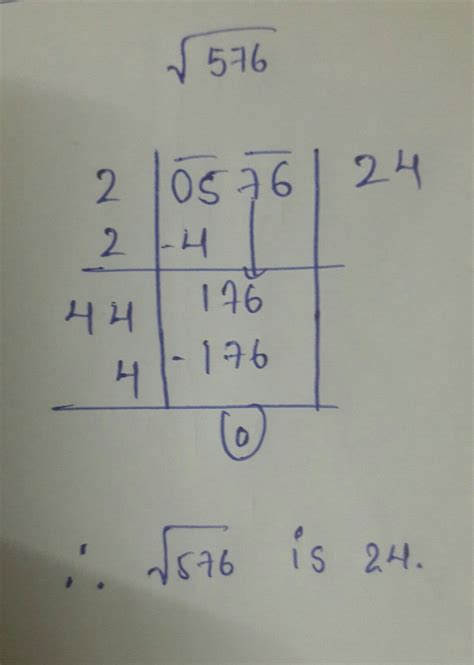 √576
2 | 05 76 | 24
2 | -4
44 | 176
4 | -176
0
∴ √576 is 24.